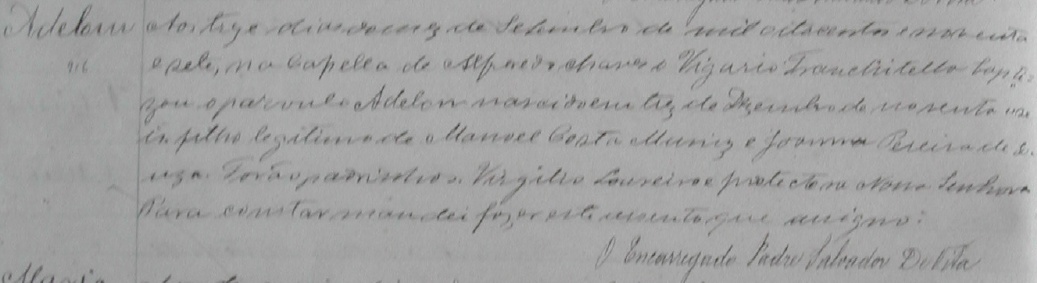 Adelom Aos treze dias do mez de Setembro de mil oitocentos e noventa
e sete, na Capella de Alfredo Chaves o Vigario Franchitello bapti-
zou o parvulo Adelom nascido em trez de Dezembro de noventa e se
is filho legitimo de Manoel Costa Muniz e Joanna Pereira de So-
uza. Forão padrinhos Virgilio Loureiro e protectora Nossa Senhora
Para constar mandei fazer este assento que assigno:
O Encarregado Padre Salvador De Vita
Maria